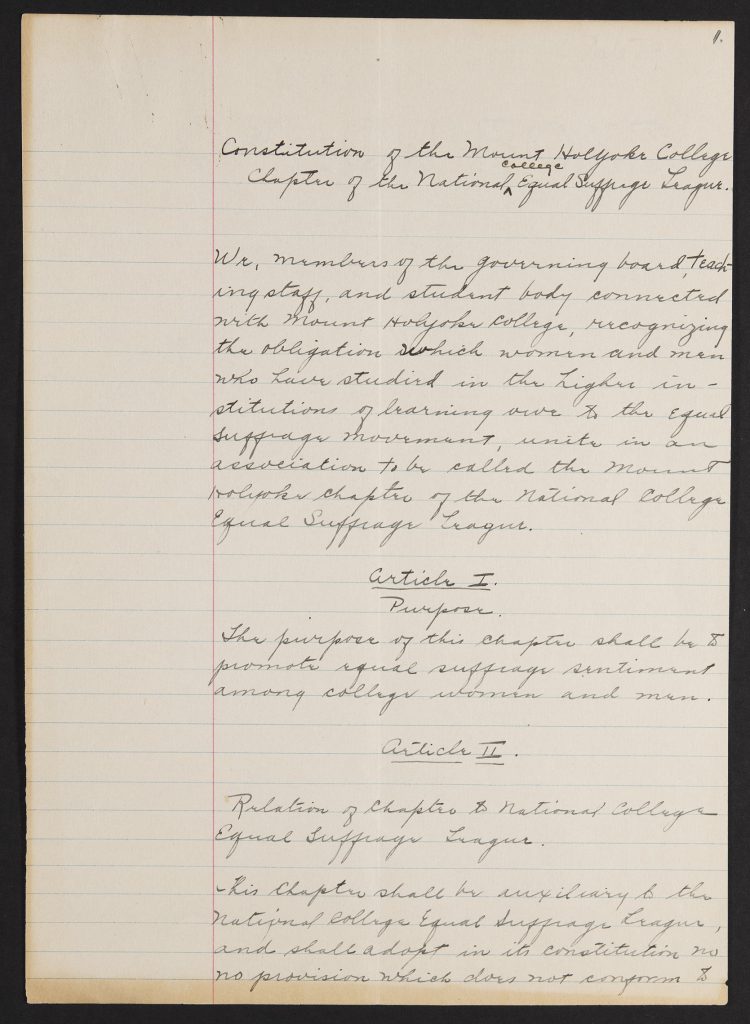 1.
Constitution of the Mount Holyoke College
Chapter of the National college Equal Suffrage League.
We, members of the governing board, teach-
ing staff, and student body connected
with Mount Holyoke College, recognizing
the obligation which women and men
who have studied in the higher in-
stitutions of learning owe to the Equal
Suffrage movement, unite in an
association to be called the Mount
Holyoke Chapter of the National College
Equal Suffrage League.
Article I.
Purpose.
The purpose of this chapter shall be to
promote equal suffrage sentiment
among college women and men.
Article II.
Relation of Chapter to National College
Equal Suffrage League.
This Chapter shall be auxiliary to the
National College Equal Suffrage League,
and shall adopt in its constitution no
no provision which does not conform to